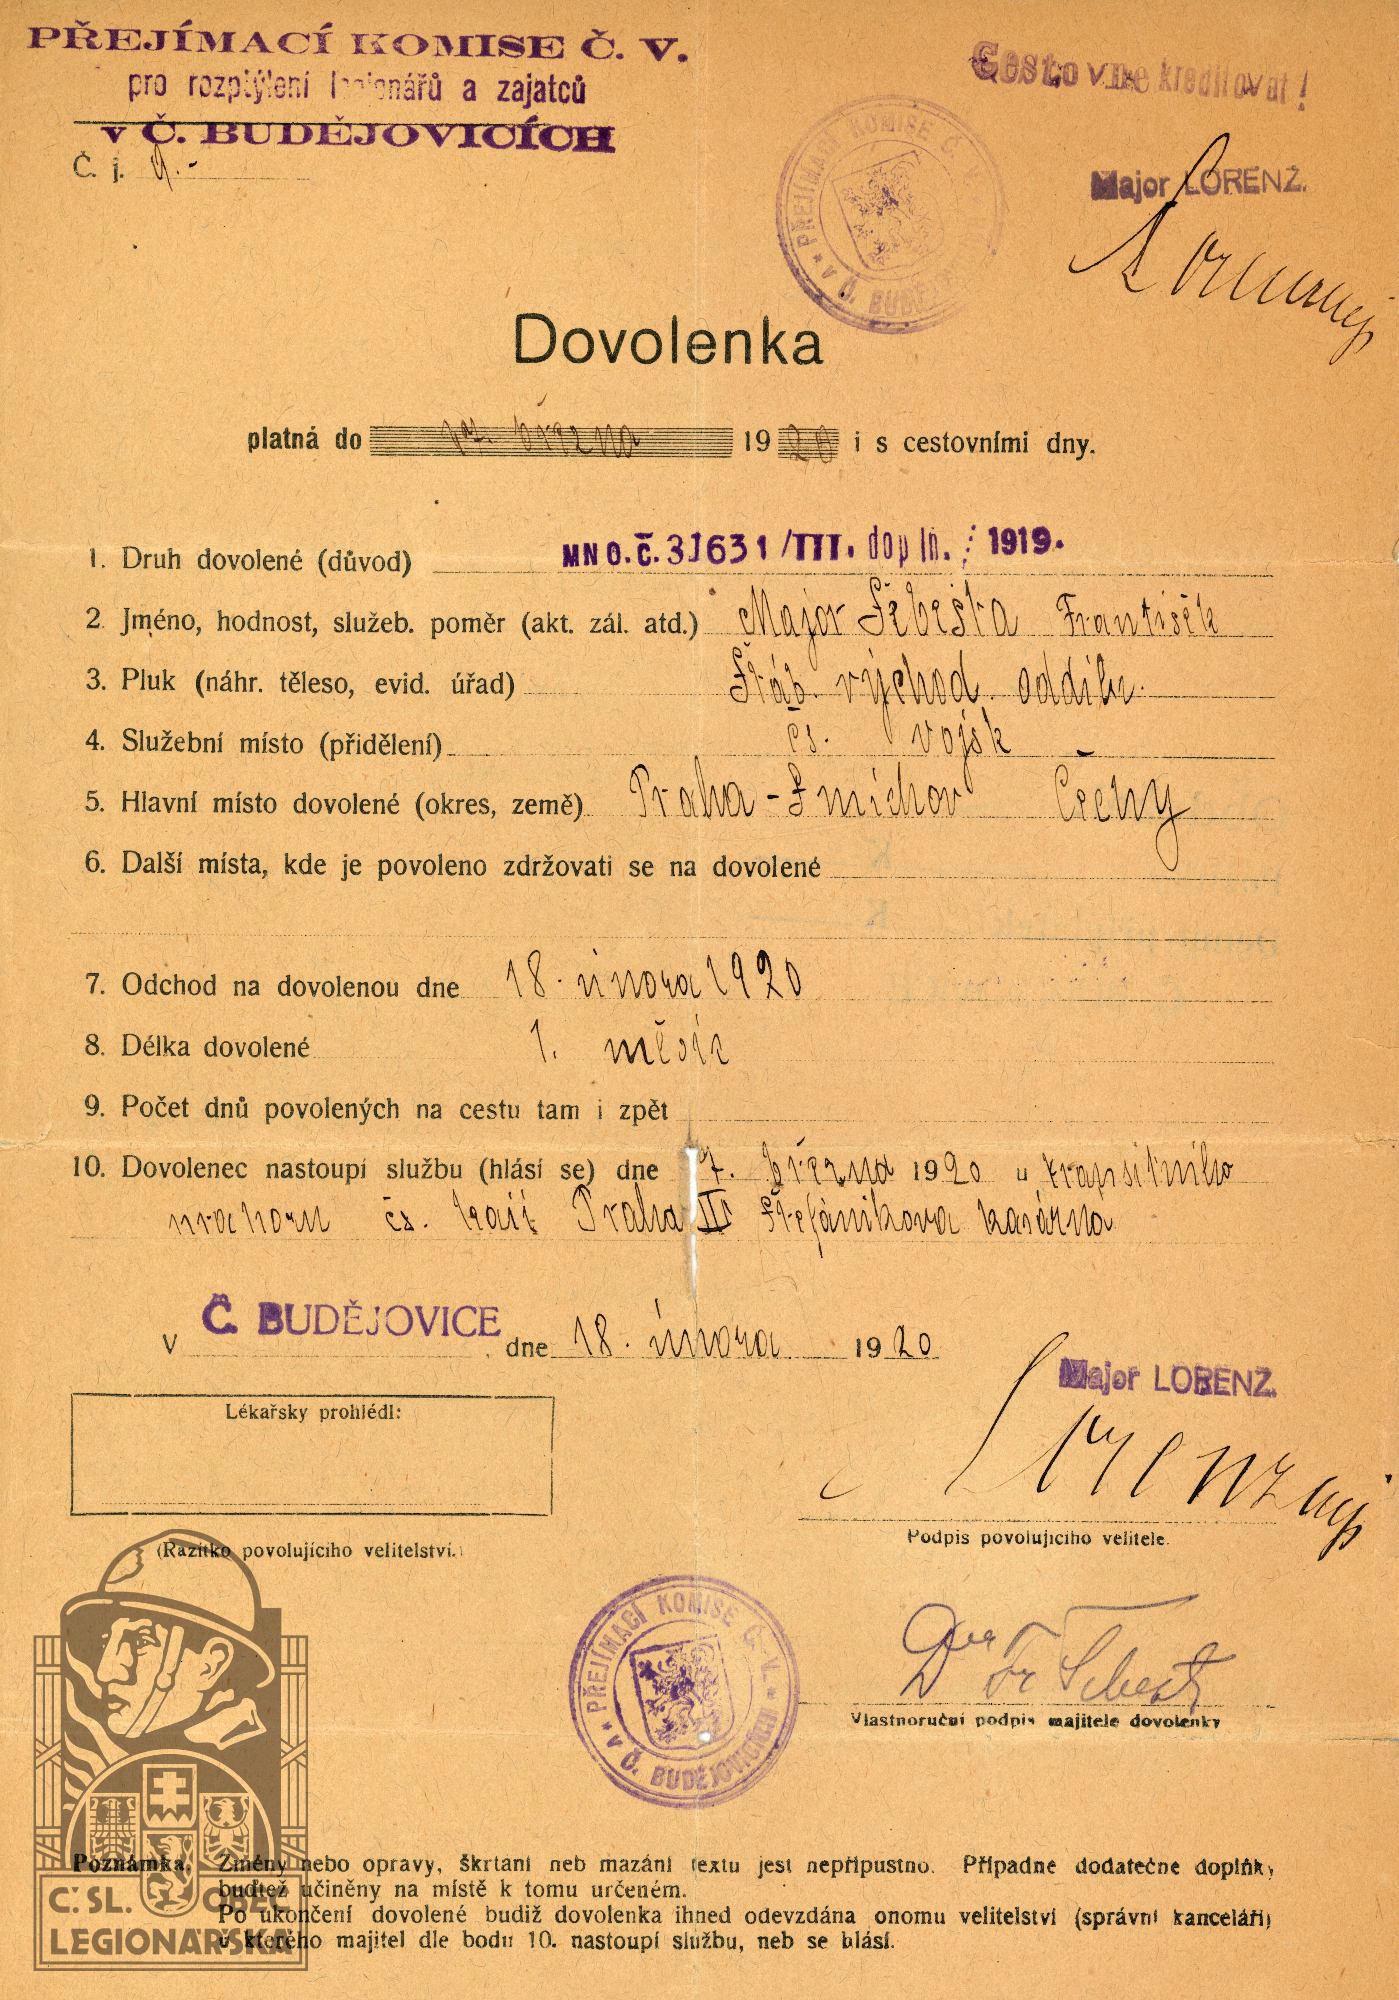 PŘEJÍMACÍ KOMISE Č. V.
pro rozptýlení legionářů a zajatců
v Č. BUDĚJOVICÍCH
Č. j.
Cestovne kreditovat!
PŘEJÍMACÍ KOMISE Č. V. * v Č. BUDĚJOVICÍCH *
Major LORENZ.
Lorenz maj
Dovolenka
platná do 17. března 1920 i s cestovními dny.
1. Druh dovolené (důvod) MNO.č.31631/III. dopln. 1919.
2. Jméno, hodnost, služeb. poměr (akt. zál. atd.) Major Šebesta František
3. Pluk (náhr. těleso, evid. úřad) Štáb. východ. oddílu
4. Služební místo (přidělení) čs. vojsk
5. Hlavní místo dovolené (okres, země) Praha-Smíchov Čechy
6. Další místa, kde je povoleno zdržovati se na dovolené
7. Odchod na dovolenou dne 18. února 1920
8. Délka dovolené 1. měsíc
9. Počet dnů povolených na cestu tam i zpět
10. Dovolenec nastoupí službu (hlásí se) dne 17. března 1920 u transitního
praporu čs. Praha III Štefánikova kasárna
V Č. BUDĚJOVICE, dne 18. února 1920
Major LORENZ.
Lorenz maj
Lékařsky prohlédl:
Podpis povolujícího velitele.
(Razítko povolujícího velitelství.)
PŘEJÍMACÍ KOMISE Č. V. * v Č. BUDĚJOVICÍCH *
Fr Šebesta
Vlastnoruční podpis majitele dovolenky
Poznámka. Změny nebo opravy, škrtání neb mazání textu jest nepřípustno. Případné dodatečné doplňky
buďtež učiněny na místě k tomu určeném.
Po ukončení dovolené budiž dovolenka ihned odevzdána onomu velitelství (správní kanceláři)
u kterého majitel dle bodu 10. nastoupí službu, neb se hlásí.
Č. SL. OBEC
LEGIONÁŘSKÁ